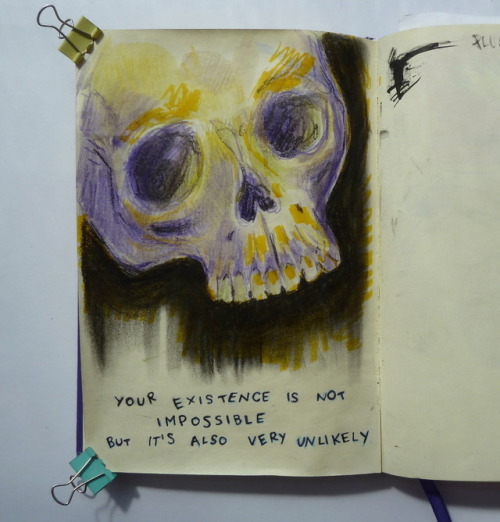 YOUR EXISTENCE IS NOT
IMPOSSIBLE
BUT IT'S ALSO VERY UNLIKELY